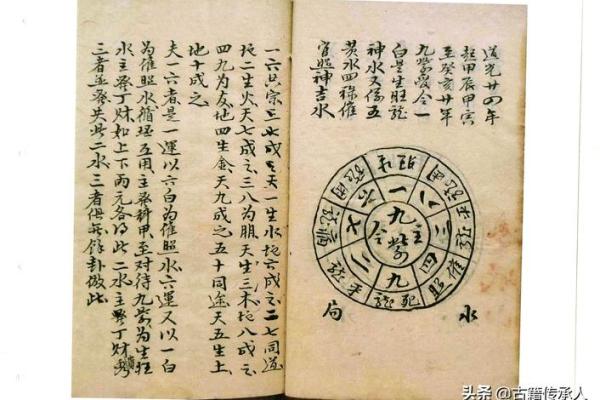 道光廿四年
起甲辰甲寅
至癸亥廿年
九紫爲令一
白是生旺龍
神水又係五
黄水四祿催
官照神吉水
九紫
主
令
一
八
三
四
九
二
七
六
催照
死龍
平龍
水
局
一六共宗天一生水地六成之二七同道
地二生火天七成之三八为朋天生三木地八成之
四九为友地四生金天九成之五十同途天五生土
地十成之
夫一六者是一運以六白為催照水六運又以一白
為催照水循環互用主發科甲至对待九紫為生旺
水主發丁財如上下兩元各得此二水主發丁財貴
三者並發失此二水三者俱無餘卦倣此
头条 @古籍传承人